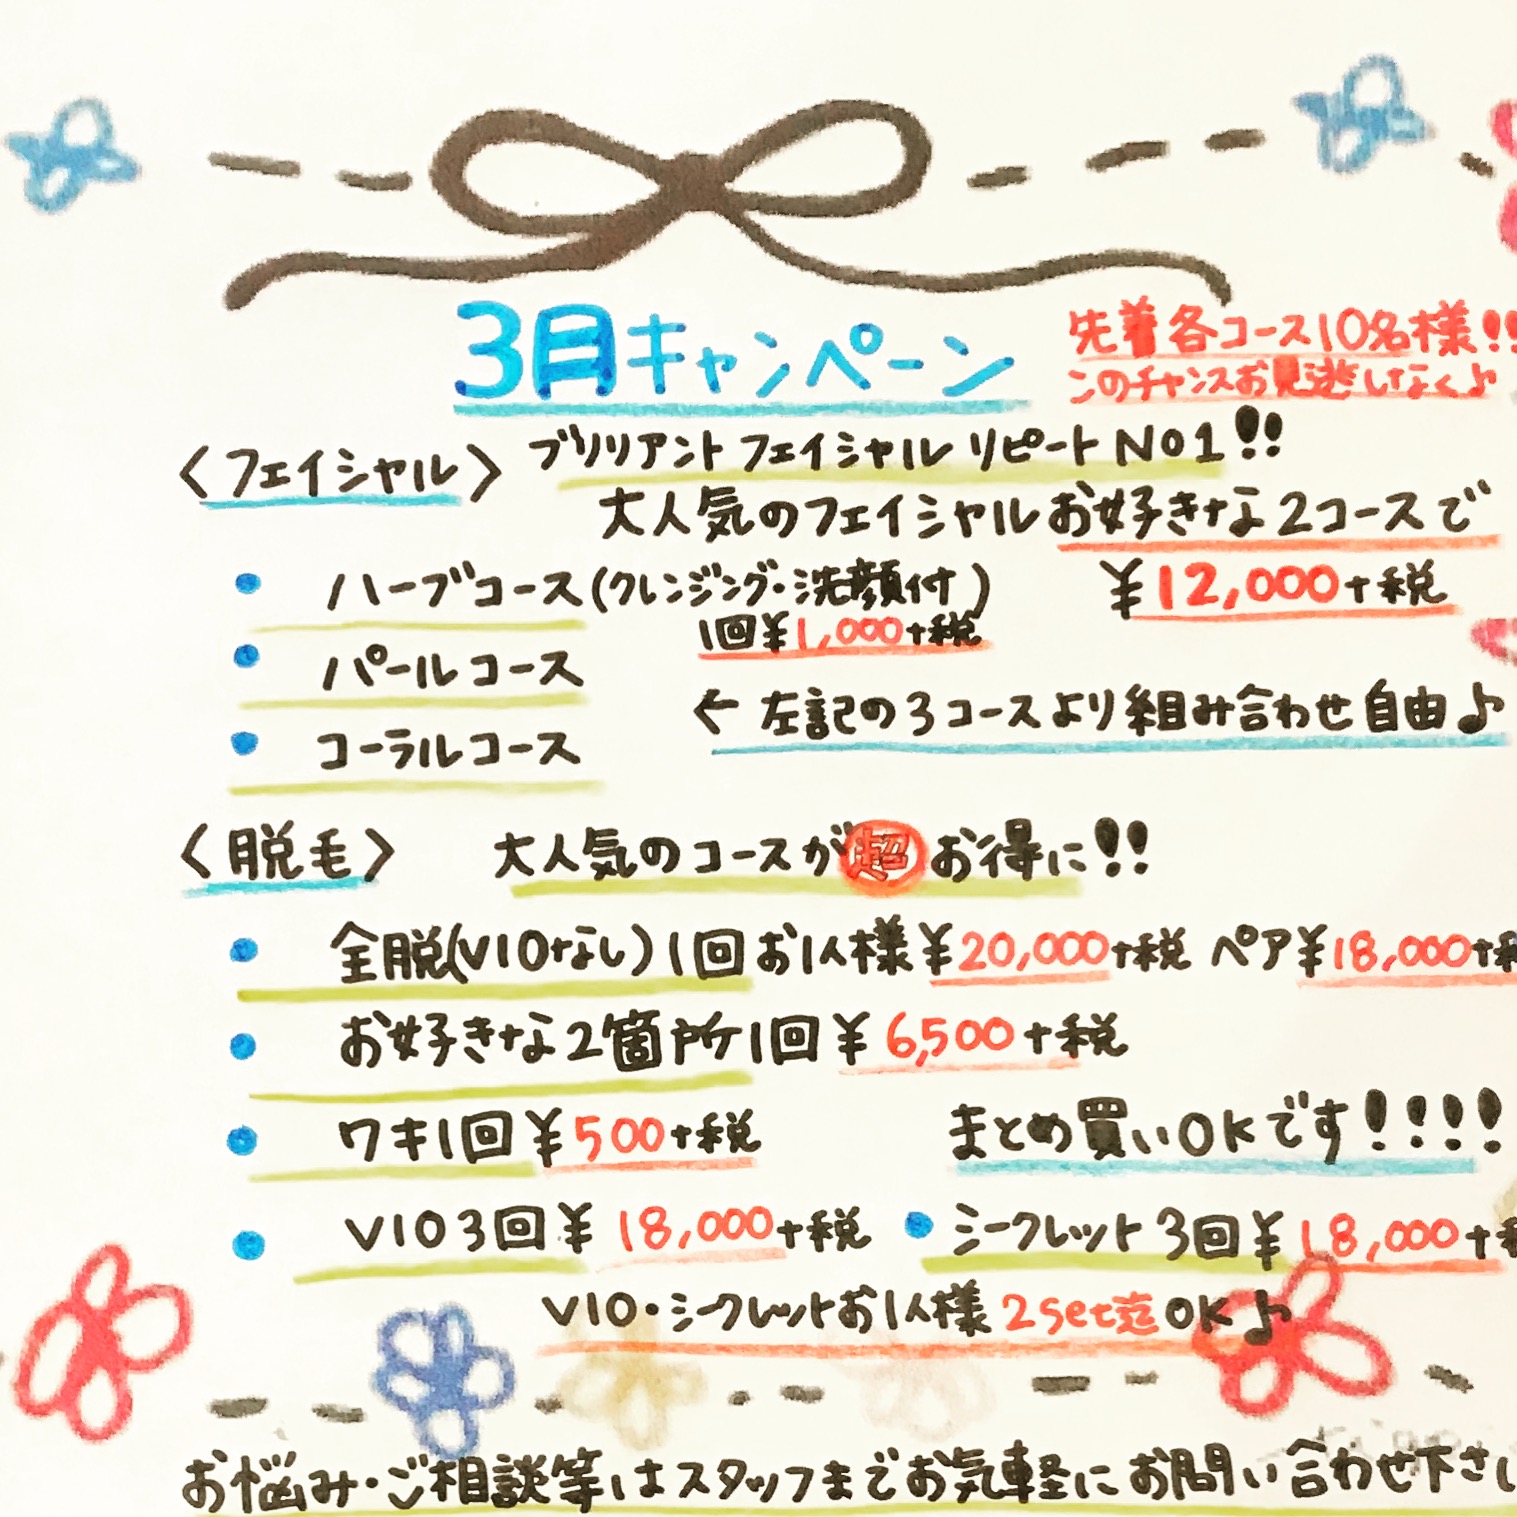 3月キャンペーン
先着各コース10名様!!
このチャンスお見逃しなく♪
〈フェイシャル〉 ブリリアントフェイシャル リピートNO1!!
大人気のフェイシャルお好きな2コースで
• ハーブコース(クレンジング・洗顔付) ¥12,000+税
1回¥1,000+税
• パールコース
← 左記の3コースより組み合わせ自由♪
• コーラルコース
〈脱毛〉 大人気のコースが超お得に!!
• 全脱(VIOなし)1回お1人様¥20,000+税 ペア¥18,000+税
• お好きな2箇所1回¥6,500+税
• ワキ1回¥500+税 まとめ買いOKです!!!!
• VIO3回¥18,000+税 • シークレット3回¥18,000+税
VIO・シークレットお1人様2set迄OK♪
お悩み・ご相談等はスタッフまでお気軽にお問い合わせ下さい